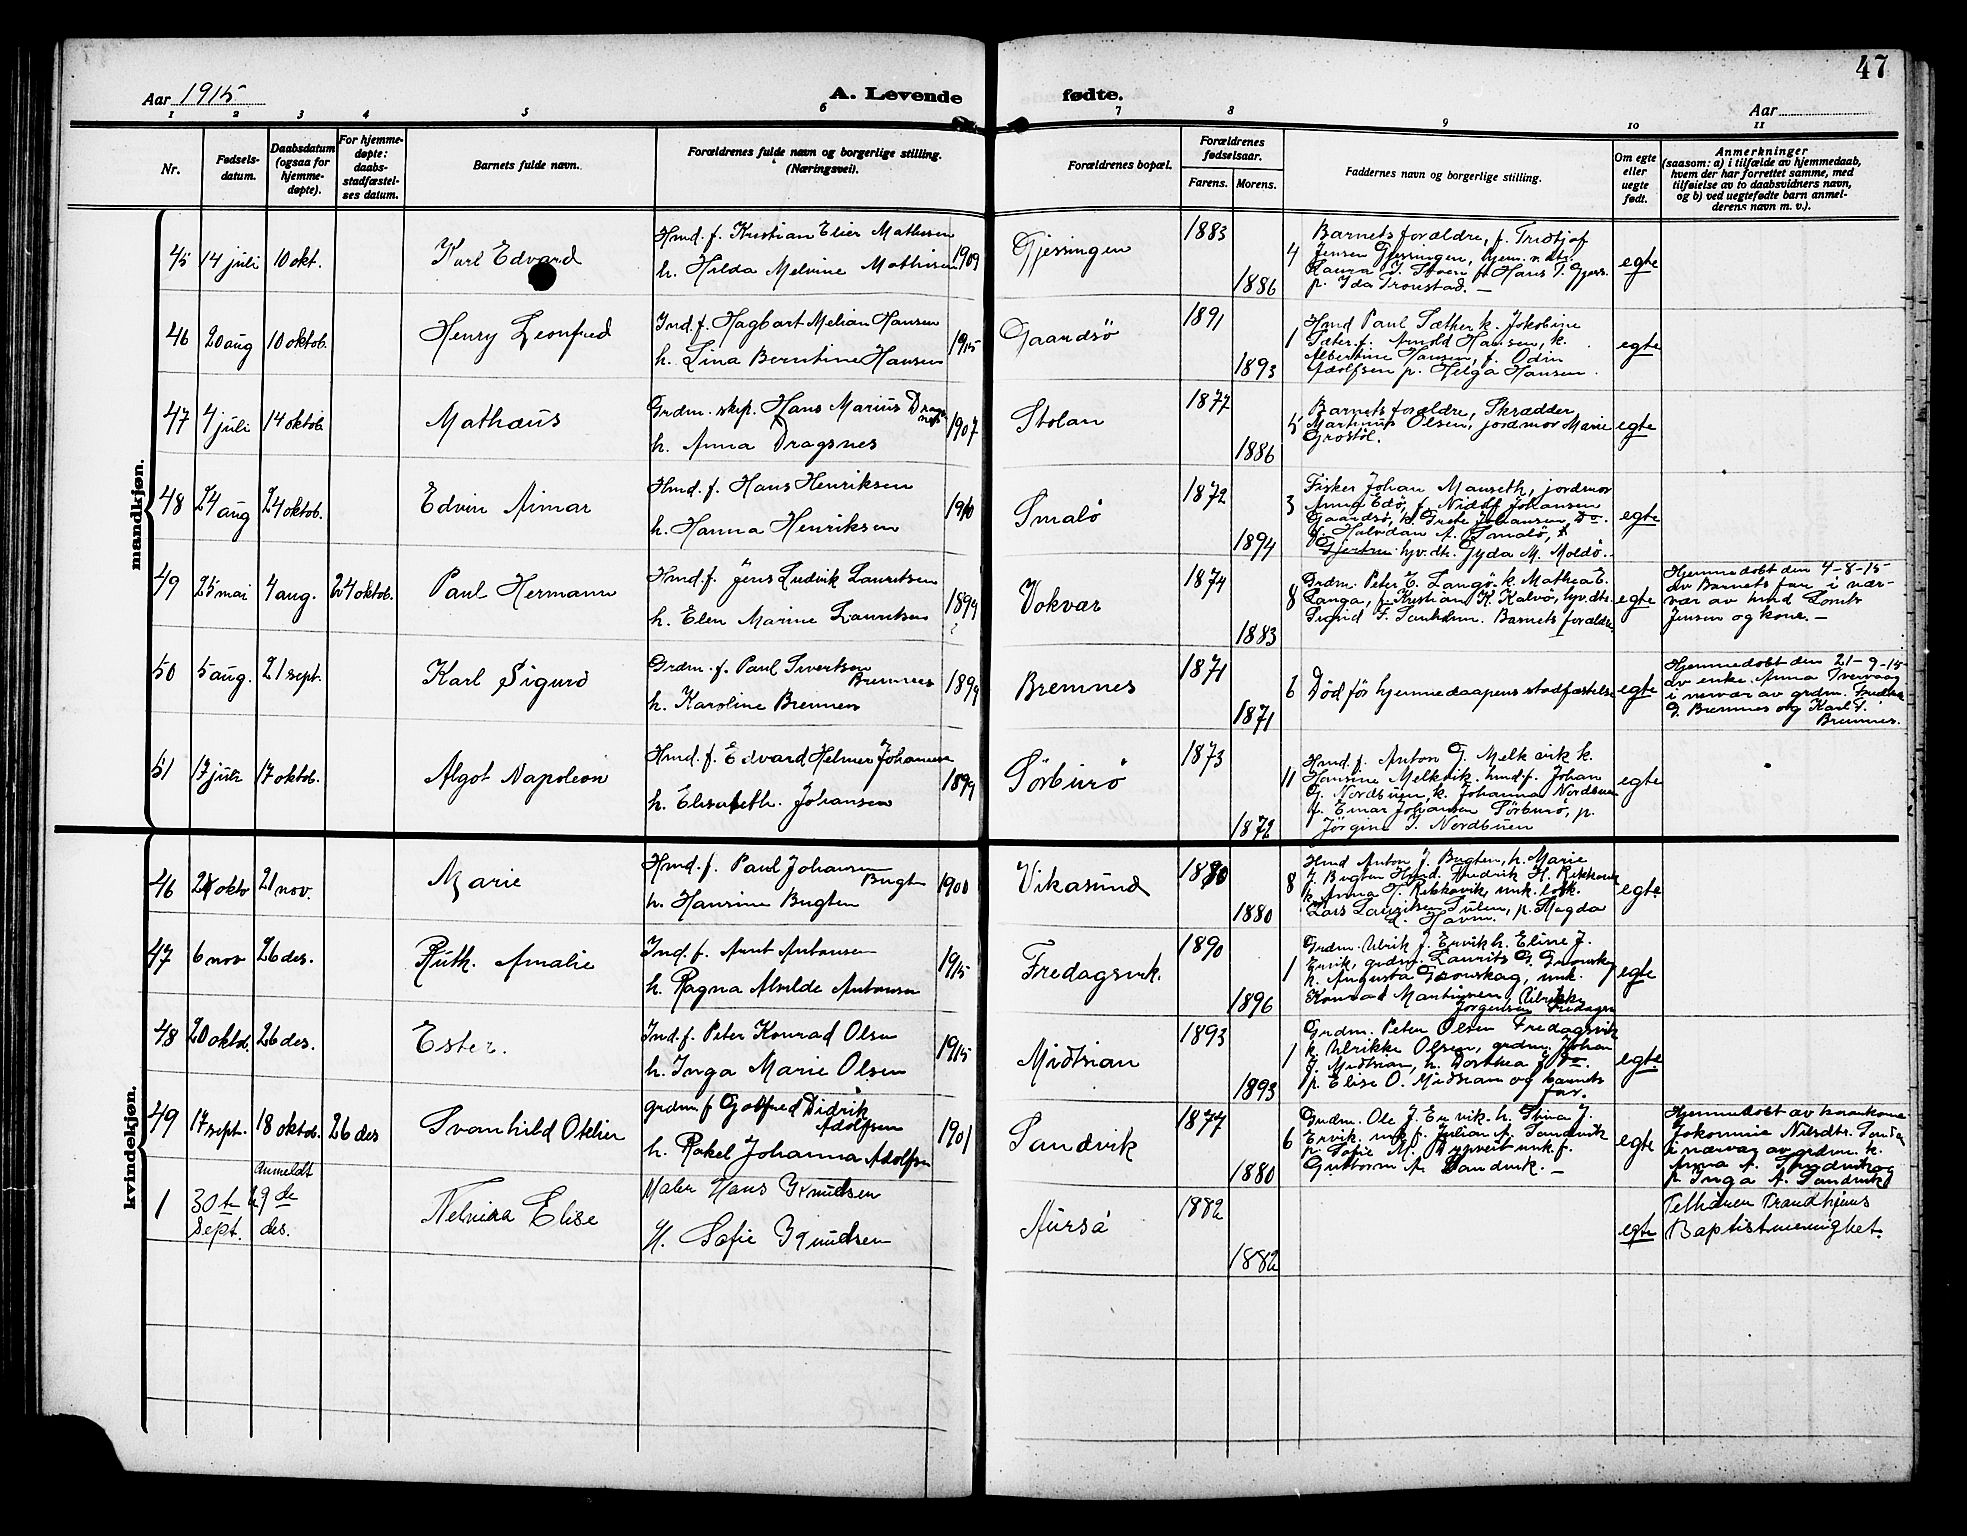 47
Aar 1915
A. Levende
fødte.
Aar
1 2 3 4 5 6 7 8 9 10 11
Nr.
Fødsels-
datum.
Daabsdatum
(ogsaa for
hjemme-
døpte).
For hjemme-
døpte:
daabs-
stadfæstel-
ses datum.
Barnets fulde navn.
Forældrenes fulde navn og borgerlige stilling.
(Næringsvei).
Forældrenes bopæl.
Forældrenes
fødselsaar.
Farens. Morens.
Faddernes navn og borgerlige stilling.
Om egte
eller
uegte
født.
Anmerkninger
(saasom: a) i tilfælde av hjemmedaab,
hvem der har forrettet samme, med
tilføielse av to daabsvidners navn,
og b) ved uegtefødte barn anmel-
derens navn m. v.).
mandkjøn.
45 14 juli 10 okt.
Karl Edvard
Hmd. f. Kristian Elier Mathisen
h. Hilda Melvine Mathisen 1909
Gjessingen
1883
1886
4
Barnets forældre, f. Tridtjof
Jensen Gjessingen, hjem. v. dtr.
p. Ida Tronstad. —
egte
46 20 aug 10 oktob.
Henry Leonfred
Ind. f. Hagbart Melian Hansen
h. Lina Berntine Hansen 1915
Gaardsö
1891
1893
1
Hmd Paul Sæther k. Jokobine
Sæter. f. Arnold Hansen, k.
Albertine Hansen, f. Odin
Adolfsen p. Helga Hansen.
egte
47 4 juli 14 oktob.
Mathæus
Grdm. skp. Hans Marius Dragsnes
h. Anna Dragsnes 1907
Stolan
1877
1886
5
Barnets forældre, Skrædder
Martinus Olsen, jordmor Marie
Grostöl.
egte
48 24 aug 24 oktob.
Edvin Aimar
Hmd. f. Hans Henriksen
h. Hanna Henriksen 1910
Smalö
1872
1894
3
Fisker Johan Mauseth, jordmor
Anna Edö, f. Nidolf Johansen
Gaardsö, k. Grete Johansen, Do.
Halvdan A. Smalö,
hjv. dtr. Gyda M. Moldö.
egte
49 25 mai 4 aug. 24 oktob.
Paul Hermann
Hmd. f. Jens Ludvik Lauritsen
h. Elen Marine Lauritsen 1899
Vokvar
1874
1883
8
Grdm. Peter E. Langö. k. Mathea E.
Langa, f. Kristian K. Kalvö, hjv. dtr.
Sigrid F. Barnets forældre.
egte
Hjemmedöbt den 4-8-15
av Barnets far i nær-
vær av hmd
Jensen og kone. —
50 5 aug. 21 sept.
Karl Sigurd
Grdm. f. Paul Sivertsen
Bremnes
h. Karoline Bremnes 1899
Bremnes
1871
1871
6
Död før hjemmedaapens stadfæstelse
egte
Hjemmedöbt den 21-9-15
av enke Anna Tvervaag
i nærvær av grdm. Fredrik
G. Bremnes og Karl
Bremnes.
51 17 juli 17 oktob.
Algot Napoleon
Hmd. f. Edvard Helmer Johansen
h. Elisabeth. Johansen 1899
Sörburö
1873
1872
11
Hmd. f. Anton G. Melkvik k.
Hansine Melkvik. hmd f. Johan
G. Nordbuen, k. Johanna Nordbuen
f. Einar Johansen Sörburö, p.
Jörgine J. Nordbuen
egte
kvindekjøn.
46 oktb 21 nov.
Marie
Hmd. f. Paul Johansen
Bugten
h. Hansine Bugten
Vikasund
1880
1880
8
Hmd Anton J. Bugten, h. Marie
J. Bugten Hmd. Fredrik H.
k. Anna
Lars Lauritsen Sulen, p. Magda
egte
47 6 nov 26 des.
Ruth. Amalie
Ind. f. Arnt Antonsen
h. Ragna Alvilde Antonsen 1915
Fredagsvik.
1890
1896
1
Grdm. Ulrik J. Ervik h. Eline J.
Ervik, grdm. Laurits G. Gronskag
h. Augusta Gronskag, unk.
Konrad Martinsen,
Jørgensen Fredagsv
egte
48 20 oktob. 26 des.
Ester.
Ind. f. Peter Konrad Olsen
h. Inga Marie Olsen 1915
Midtsian
1893
1893
1
Grdm. Peter Olsen Fredagsvik
k. Ulrikke Olsen, grdm. Johan
J. Midtsian, h. Dorthea J. Do.
p. Elise O. Midtsian og barnets
far.
egte.
49 17 sept. 18 oktob. 26 des
Svanhild Otelier
grdm f Gotfred Didrik
Adolfsen
h. Rakel Johanna Adolfsen 1901
Sandvik
1877
1880
6
Grdm. Ole J. Ervik. h. Stina J.
Ervik. unk f. Julian A. Sandvik
p. Sofie M. unk. f.
Guttorm A. Sandvik. —
egte
Hjemmedöbt av
Jokomine Nilsdtr.
i nærvær av grdm. k.
Anna A. Sandvik og
p. Inga A. Sandvik
1 30te sept. Anmeldt 9de des.
Elise
Maler Hans Knudsen
H. Sofie Knudsen
Aursö
1882
1882
egte
Tilhören Trondhjems
Baptistmenighet.